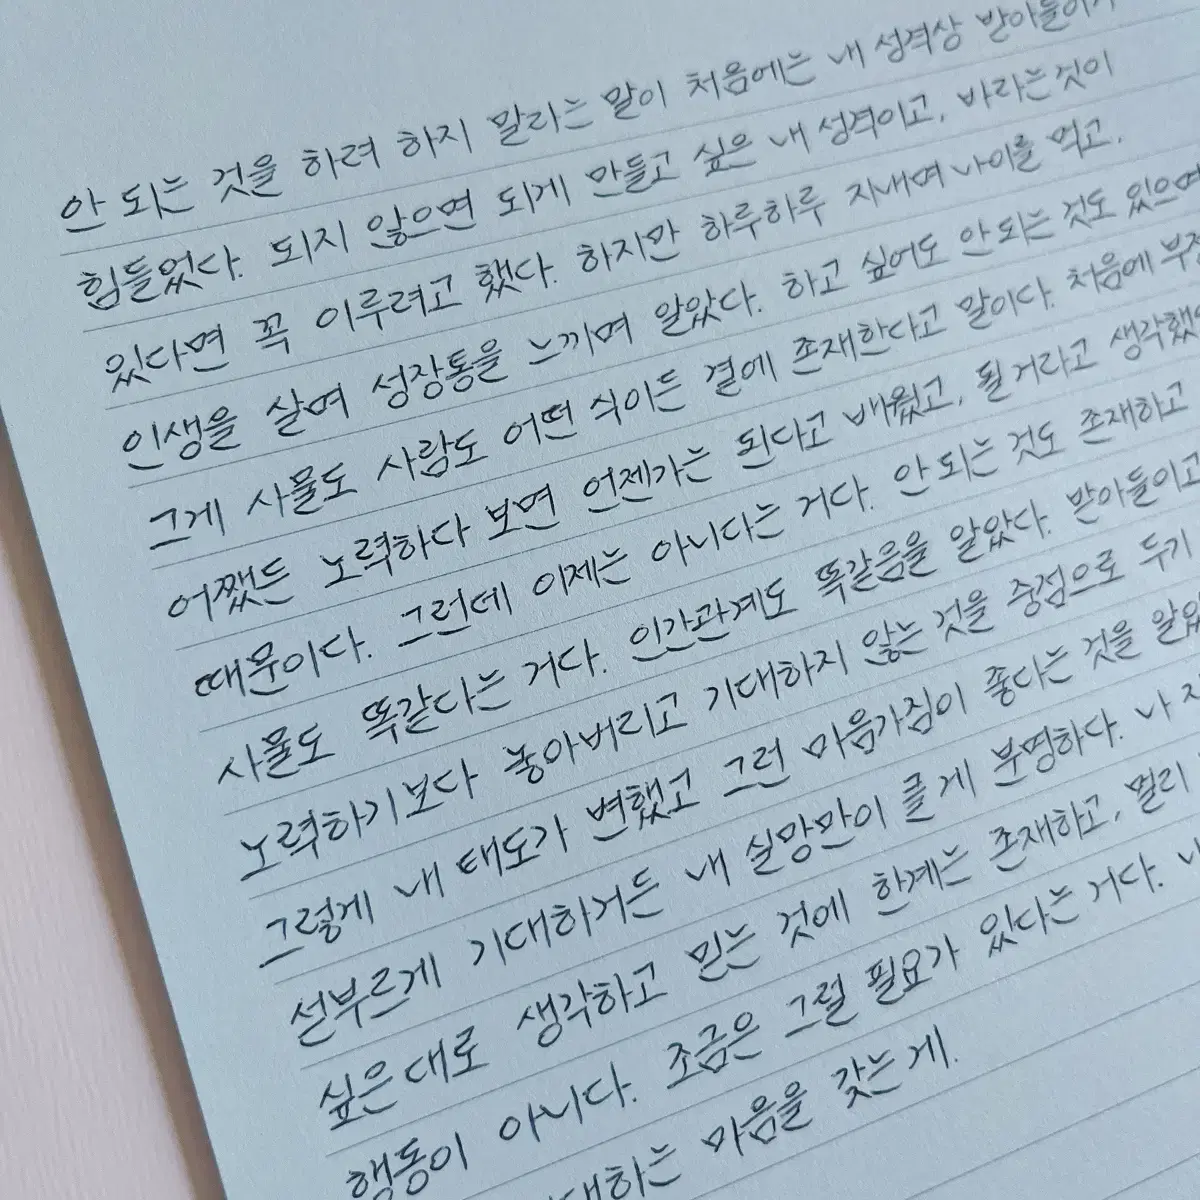 안 되는 것을 하려 하지 말라는 말이 처음에는 내 성격상 받아들이기
힘들었다. 되지 않으면 되게 만들고 싶은 내 성격이고, 바라는것이
있다면 꼭 이루려고 했다. 하지만 하루하루 지내며 나이를 먹고,
인생을 살며 성장통을 느끼며 알았다. 하고 싶어도 안되는 것도 있으며
그게 사물도 사람도 어떤 식이든 곁에 존재한다고 말이다. 처음에
어쨌든 노력하다 보면 언젠가는 된다고 배웠고, 될거라고 생각했
때문이다. 그런데 이제는 아니다는 거다. 안되는 것도 존재하고
사물도 똑같다는 거다. 인간관계도 똑같음을 알았다. 받아들이고
노력하기보다 놓아버리고 기대하지 않는 것을 중점으로 두기
그렇게 내 태도가 변했고 그런 마음가짐이 좋다는 것을 알았
섣부르게 기대하거든 내 실망만이 클게 분명하다. 나
싶은대로 생각하고 믿는 것에 한계는 존재하고, 멀리
행동이 아니다. 조금은 그럴 필요가 있다는 거다.
대하는 마음을 갖는게.